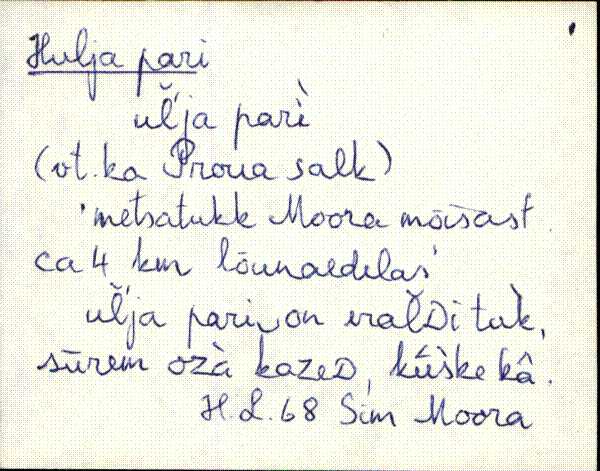 Hulja pari
uľ̆ja parì
(vt. ka Proua salk)
'metsatukk Moora mõisast
ca 4 km lõunaedelas'
uľ̆ja pari on eralDi tuk̀,
sūrem ozà kazeD, kūske kâ.
H.L. 68 Sim Moora